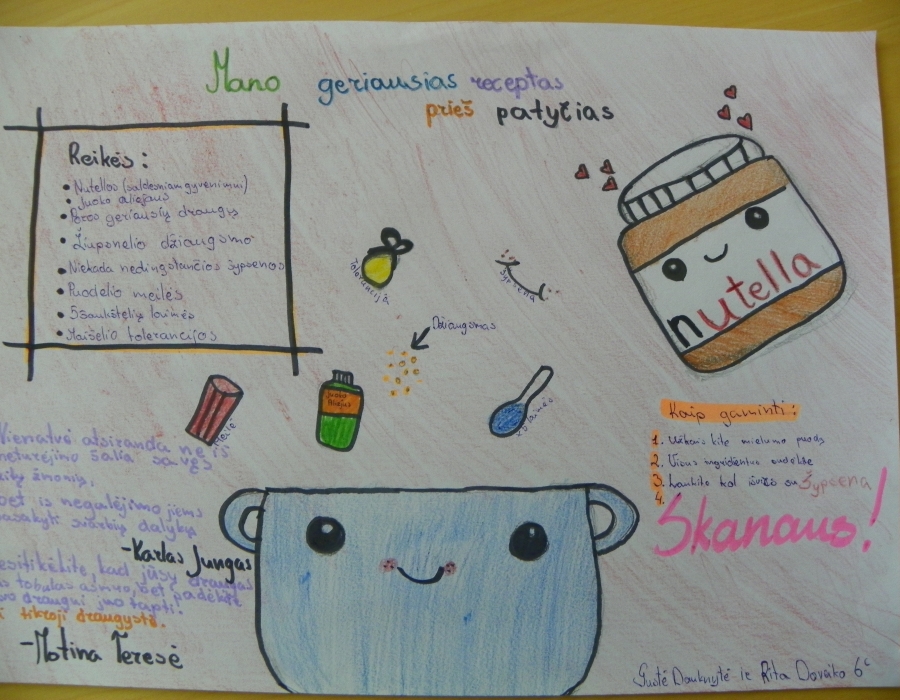 Mano geriausias receptas
prieš patyčias
Reikės:
• Nutellos (saldesniam gyvenimui)
• Juoko aliejaus
• Poros geriausių draugų
• Žiupsnelio džiaugsmo
• Niekada nedingstančios šypsenos
• Puodelio meilės
• 5 šaukštelių laimės
• Maišelio tolerancijos
Tolerancija
Šypsena
nutella
Džiaugsmas
Meilė
Juoko
Aliejus
laimės
Kaip gaminti:
1. Užkais kite mielumo puodą
2. Visus ingridientus sudėkite
3. Laukite kol išvirs su šypsena
4. Skanaus!
Vienatvė atsiranda ne iš
neturėjimo šalia savęs
kitų žmonių,
bet iš negalėjimo jiems
pasakyti svarbių dalykų
-Karlas Jungas
kad jūsų draugas
tobulas asmuo, bet padėkite
draugui juo tapti.
tikroji draugystė.
-Motina Teresė
Gustė Dauknytė ir Rita 6c